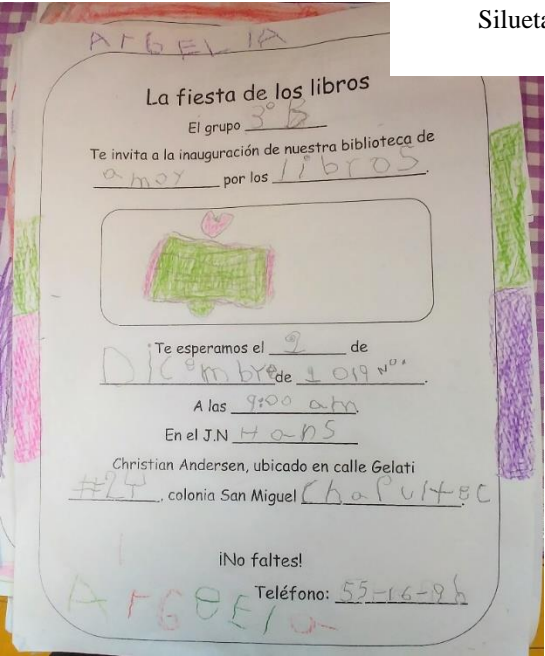 Silueta
ArGELIA
La fiesta de los libros
El grupo 3° B
Te invita a la inauguración de nuestra biblioteca de
amor por los libros.
Te esperamos el 9 de
DICembre de 2019
A las 9:00 am.
En el J.N Hans
Christian Andersen, ubicado en calle Gelati
#24, colonia San Miguel ChaPultEC.
¡No faltes!
Teléfono: 55-16-
ArGELIa